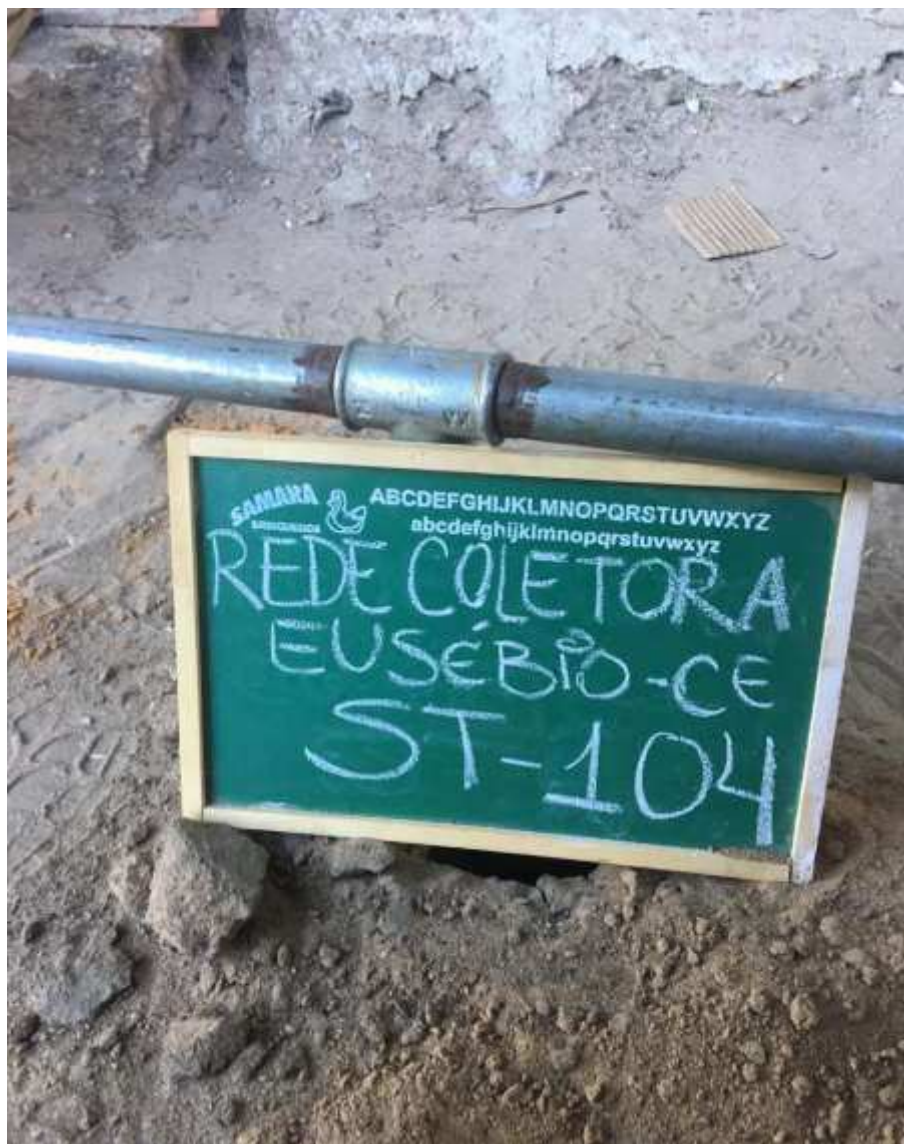 SAMARA
ABCDEFGHIJKLMNOPQRSTUVWXYZ
abcdefghijklmnopqrstuvwxyz
REDE COLETORA
EUSÉBIO-CE
ST-104